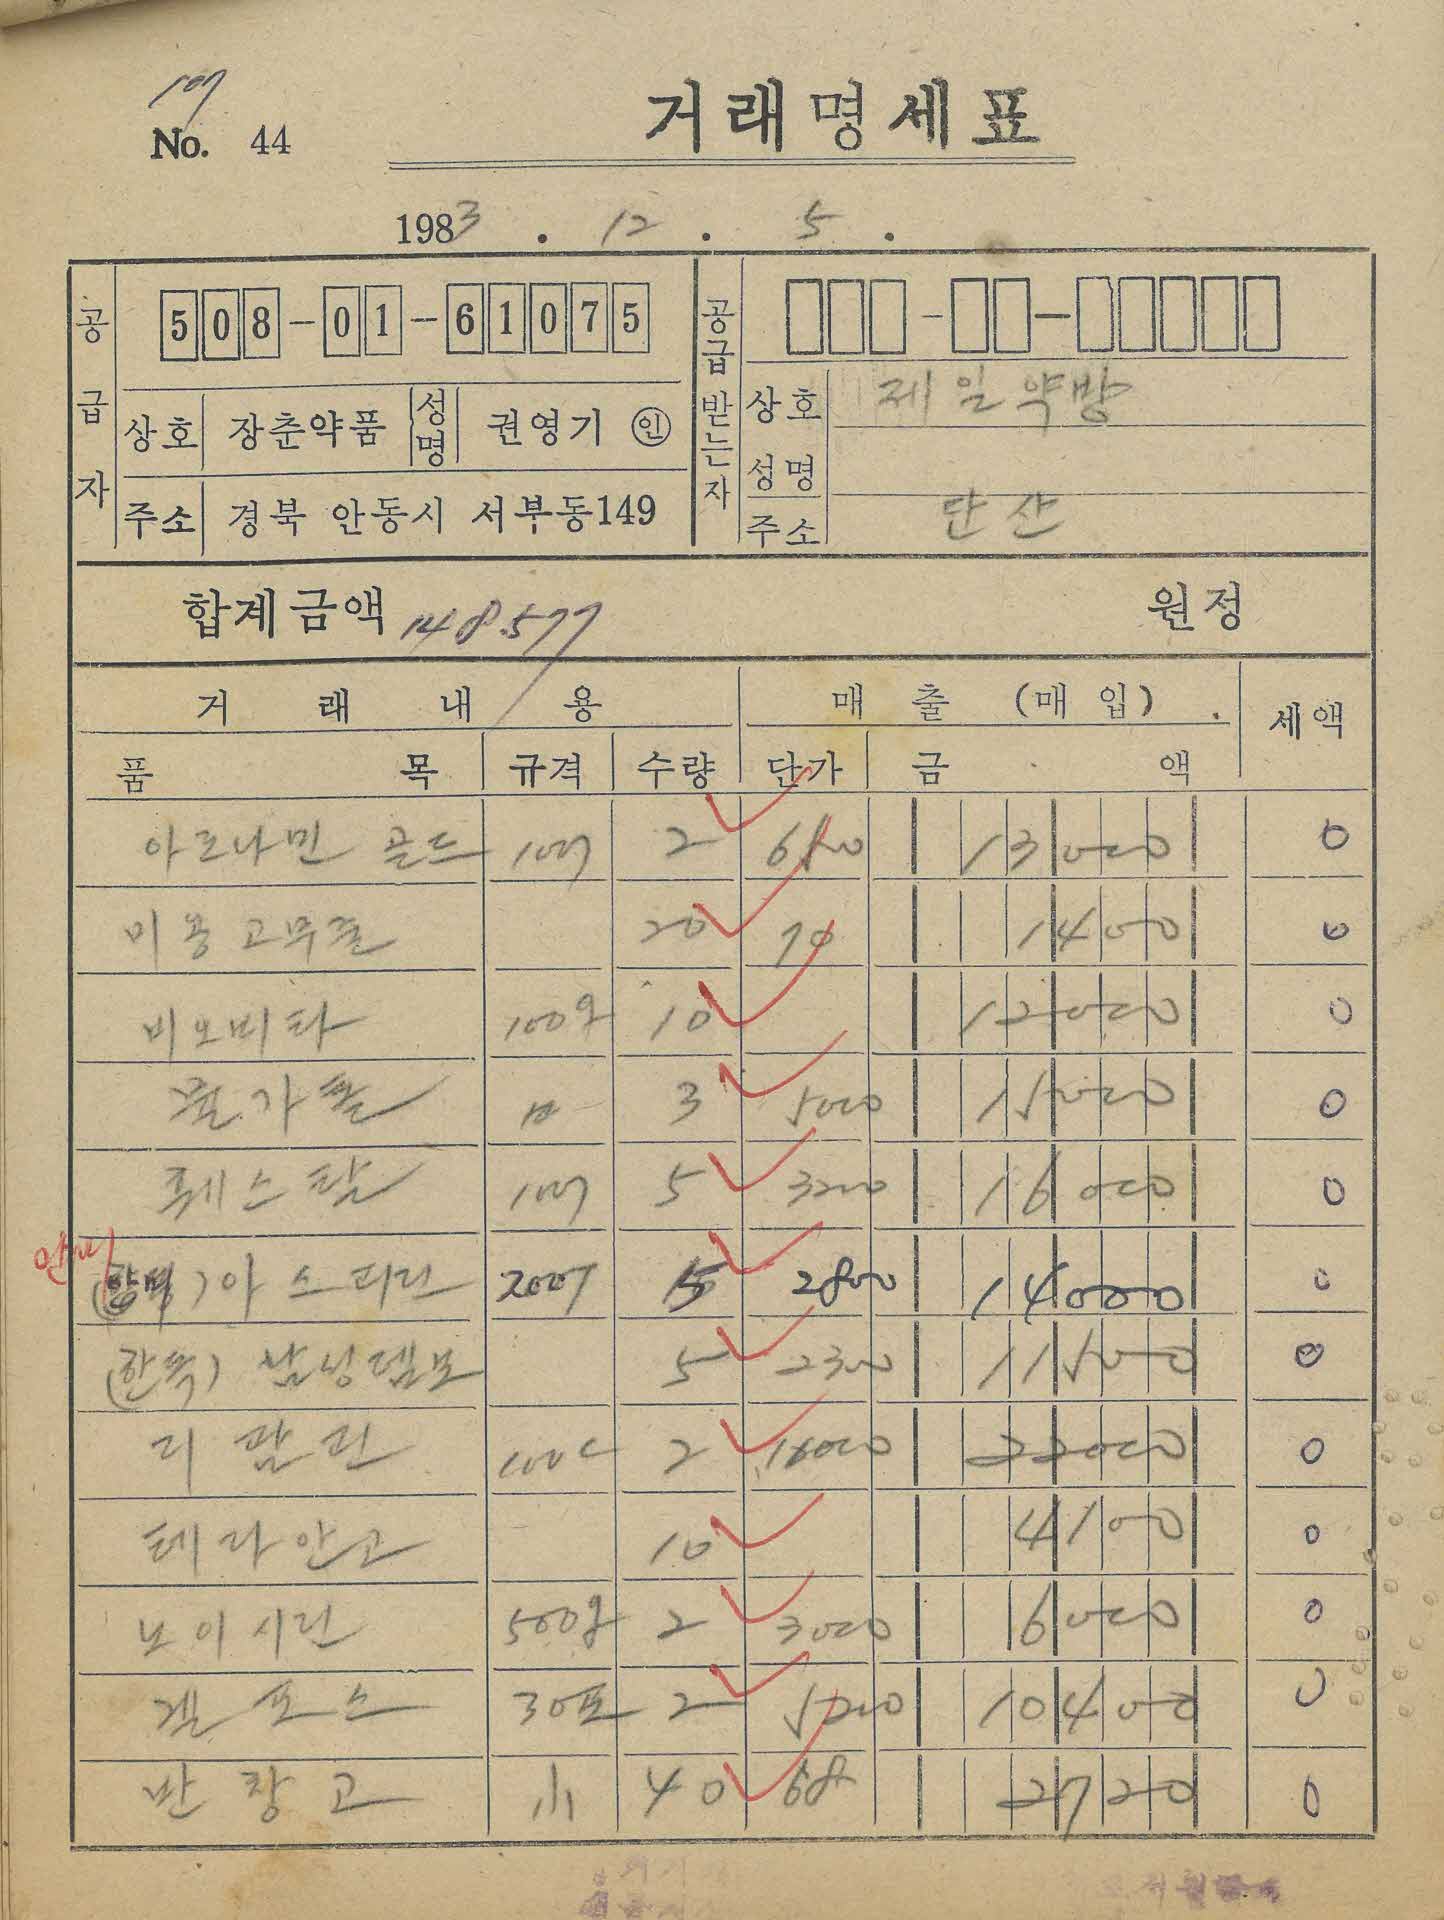 10T
No. 44
거래명세표
1983 . 12 . 5 .
공급자
508-01-61075
상호 장춘약품 성명 권영기 ㊞
주소 경북 안동시 서부동149
공급받는자
상호 제일약방
성명
주소 단산
합계금액 148.577 원정
거래내용 매출 (매입) 세액
품목 규격 수량 단가 금액
아로나민 골드 100T 2 6500 13000 0
미용고무풀 20 70 1400 0
비오비타 100g 10 12000 0
3 5000 15000 0
훼스탈 100T 5 3200 16000 0
아스피린 200T 5 2800 14000 0
(한독) 남성템포 5 2300 11500 0
리팜핀 100C 2 22000 0
테라안고 10 4100 0
노이시린 500g 2 3000 6000 0
겔포스 30포 2 5200 10400 0
반창고 小 40 68 2720 0